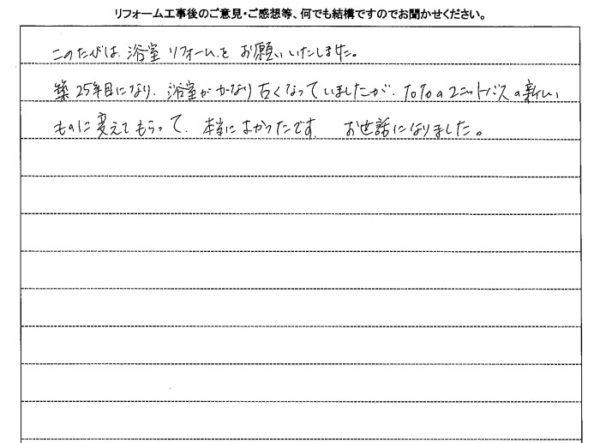 リフォーム工事後のご意見・ご感想等、何でも結構ですのでお聞かせください。
このたびは、浴室リフォームをお願いいたしました。
築25年目になり、浴室がかなり古くなっていましたが、TOTOのユニットバスの新しい
ものに変えてもらって、本当によかったです。 お世話になりました。